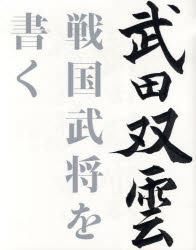 武田双雲
戦国武将を
書く